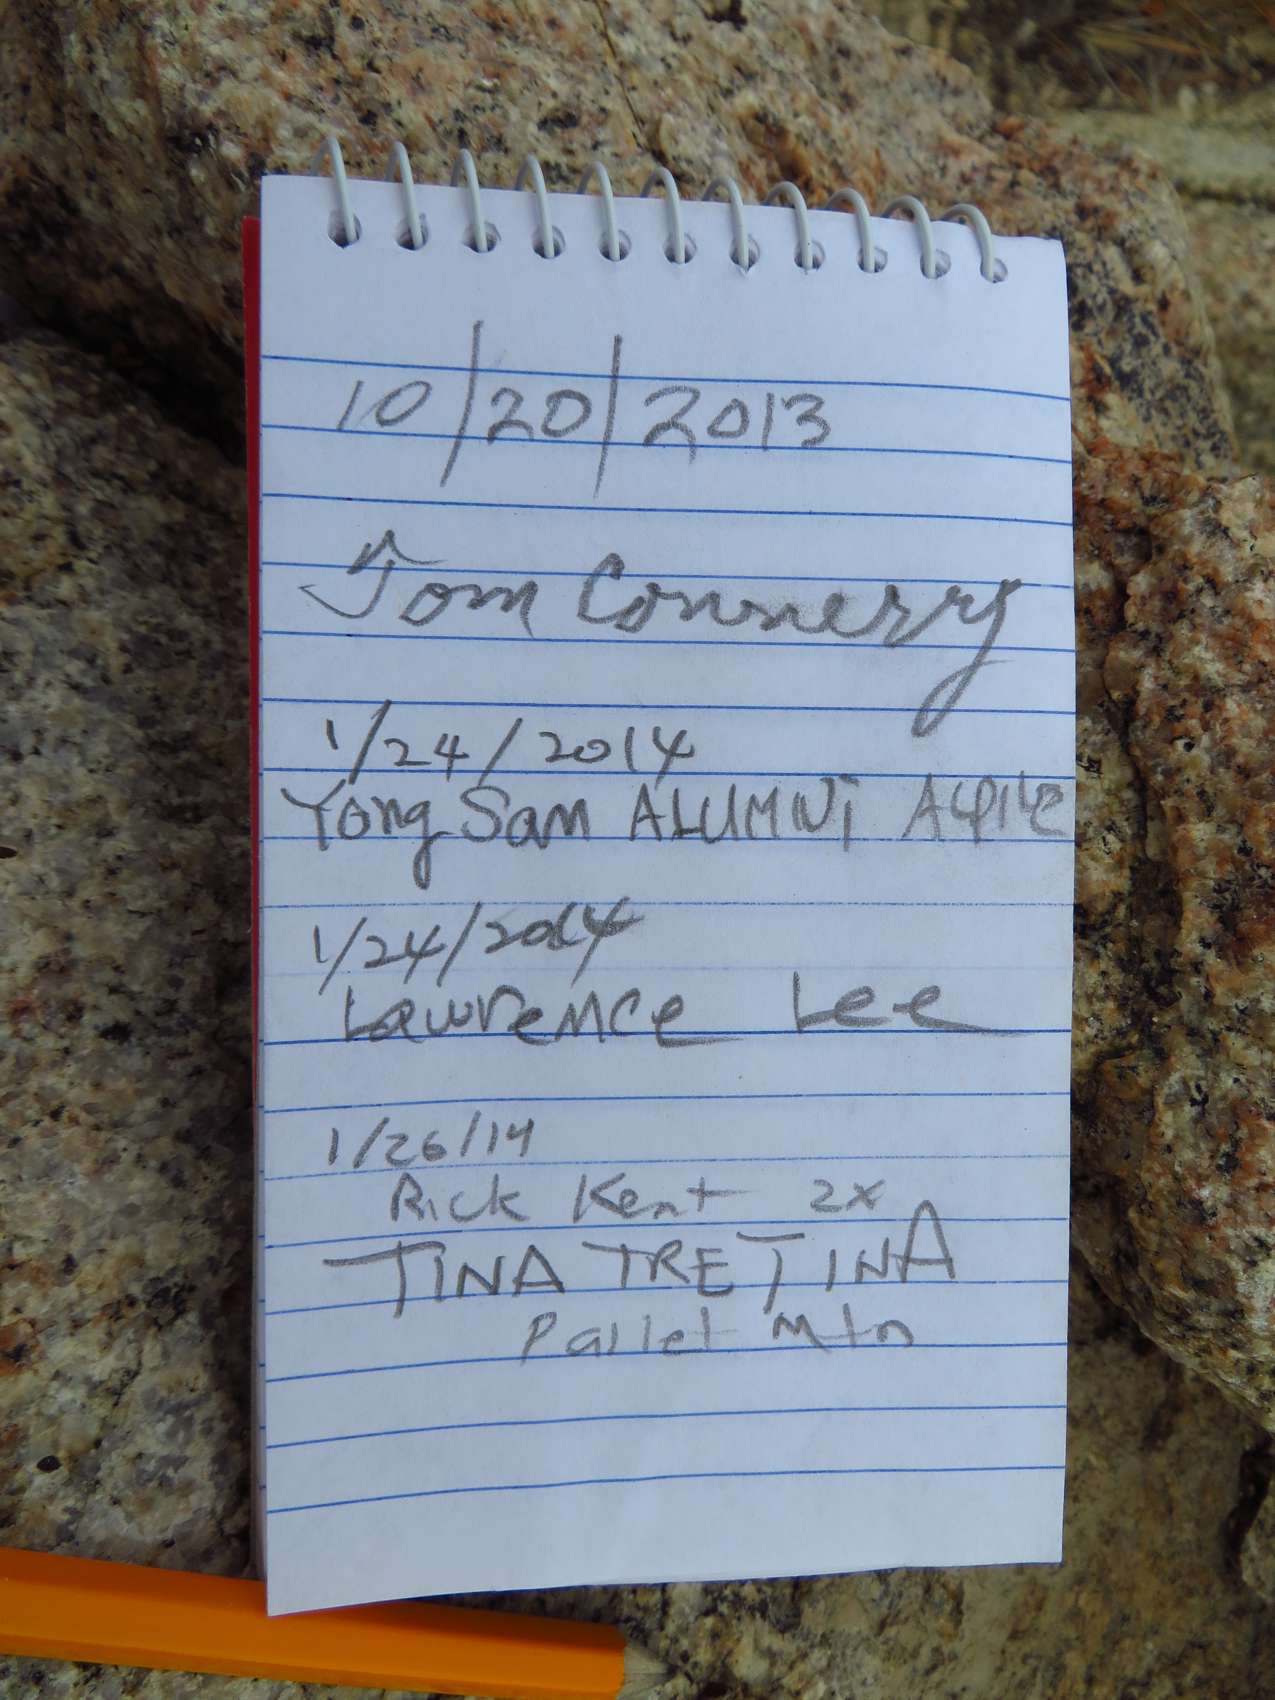 10/20/2013
Tom Connerry
1/24/2014
Yong San ALUMNi
1/24/2014
Lawrence Lee
1/26/14
Rick Kent 2x
TINA TRETINA
Pallet Mtn